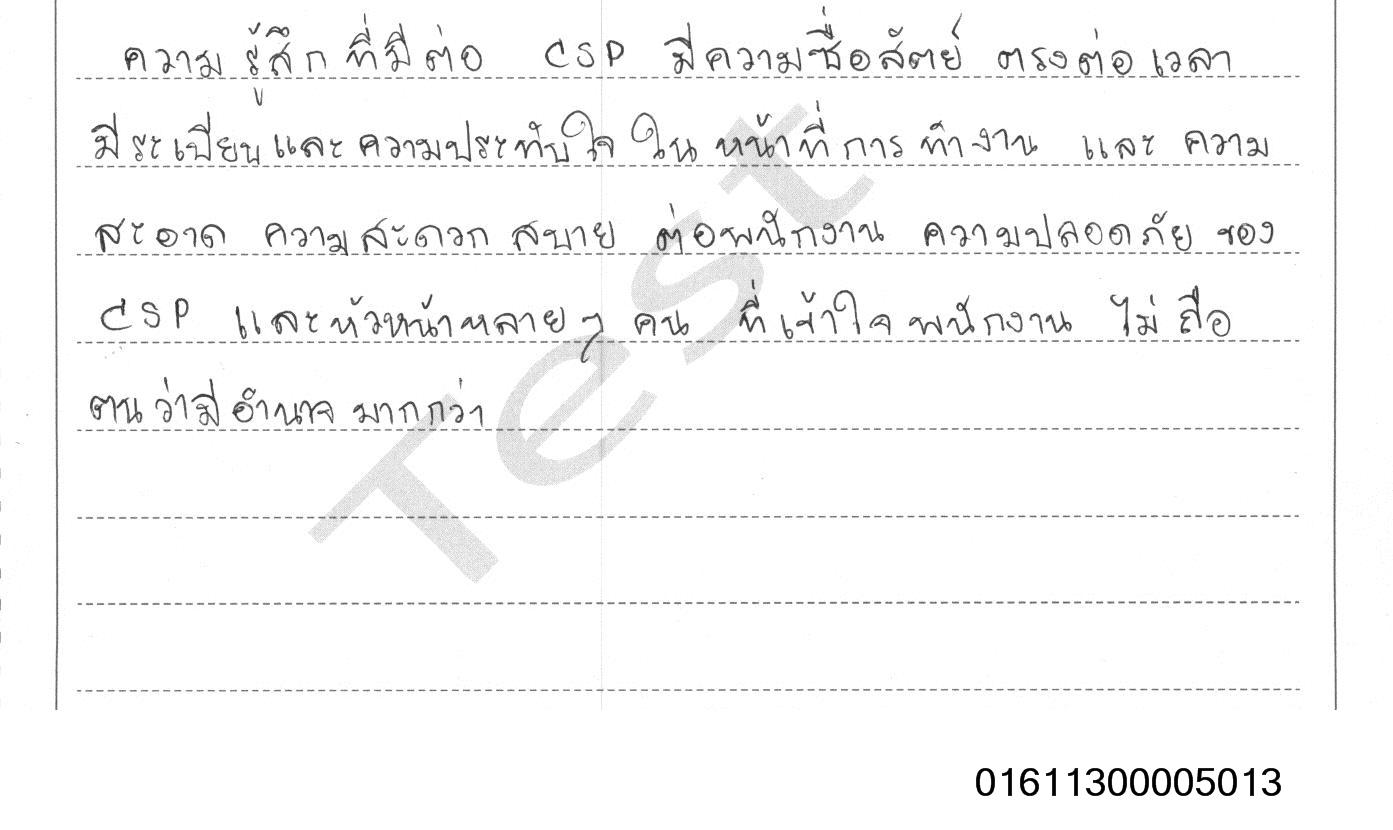 ความรู้สึกที่มีต่อ CSP มีความซื่อสัตย์ ตรงต่อเวลา
มีระเบียบและความประทับใจ ในหน้าที่การทำงาน และ ความ
สะอาด ความสะดวก สบาย ต่อพนักงาน ความปลอดภัย ของ
CSP และหัวหน้าหลายๆ คน ที่เข้าใจพนักงาน ไม่ถือ
ตนว่ามีอำนาจมากกว่า
Test
01611300005013